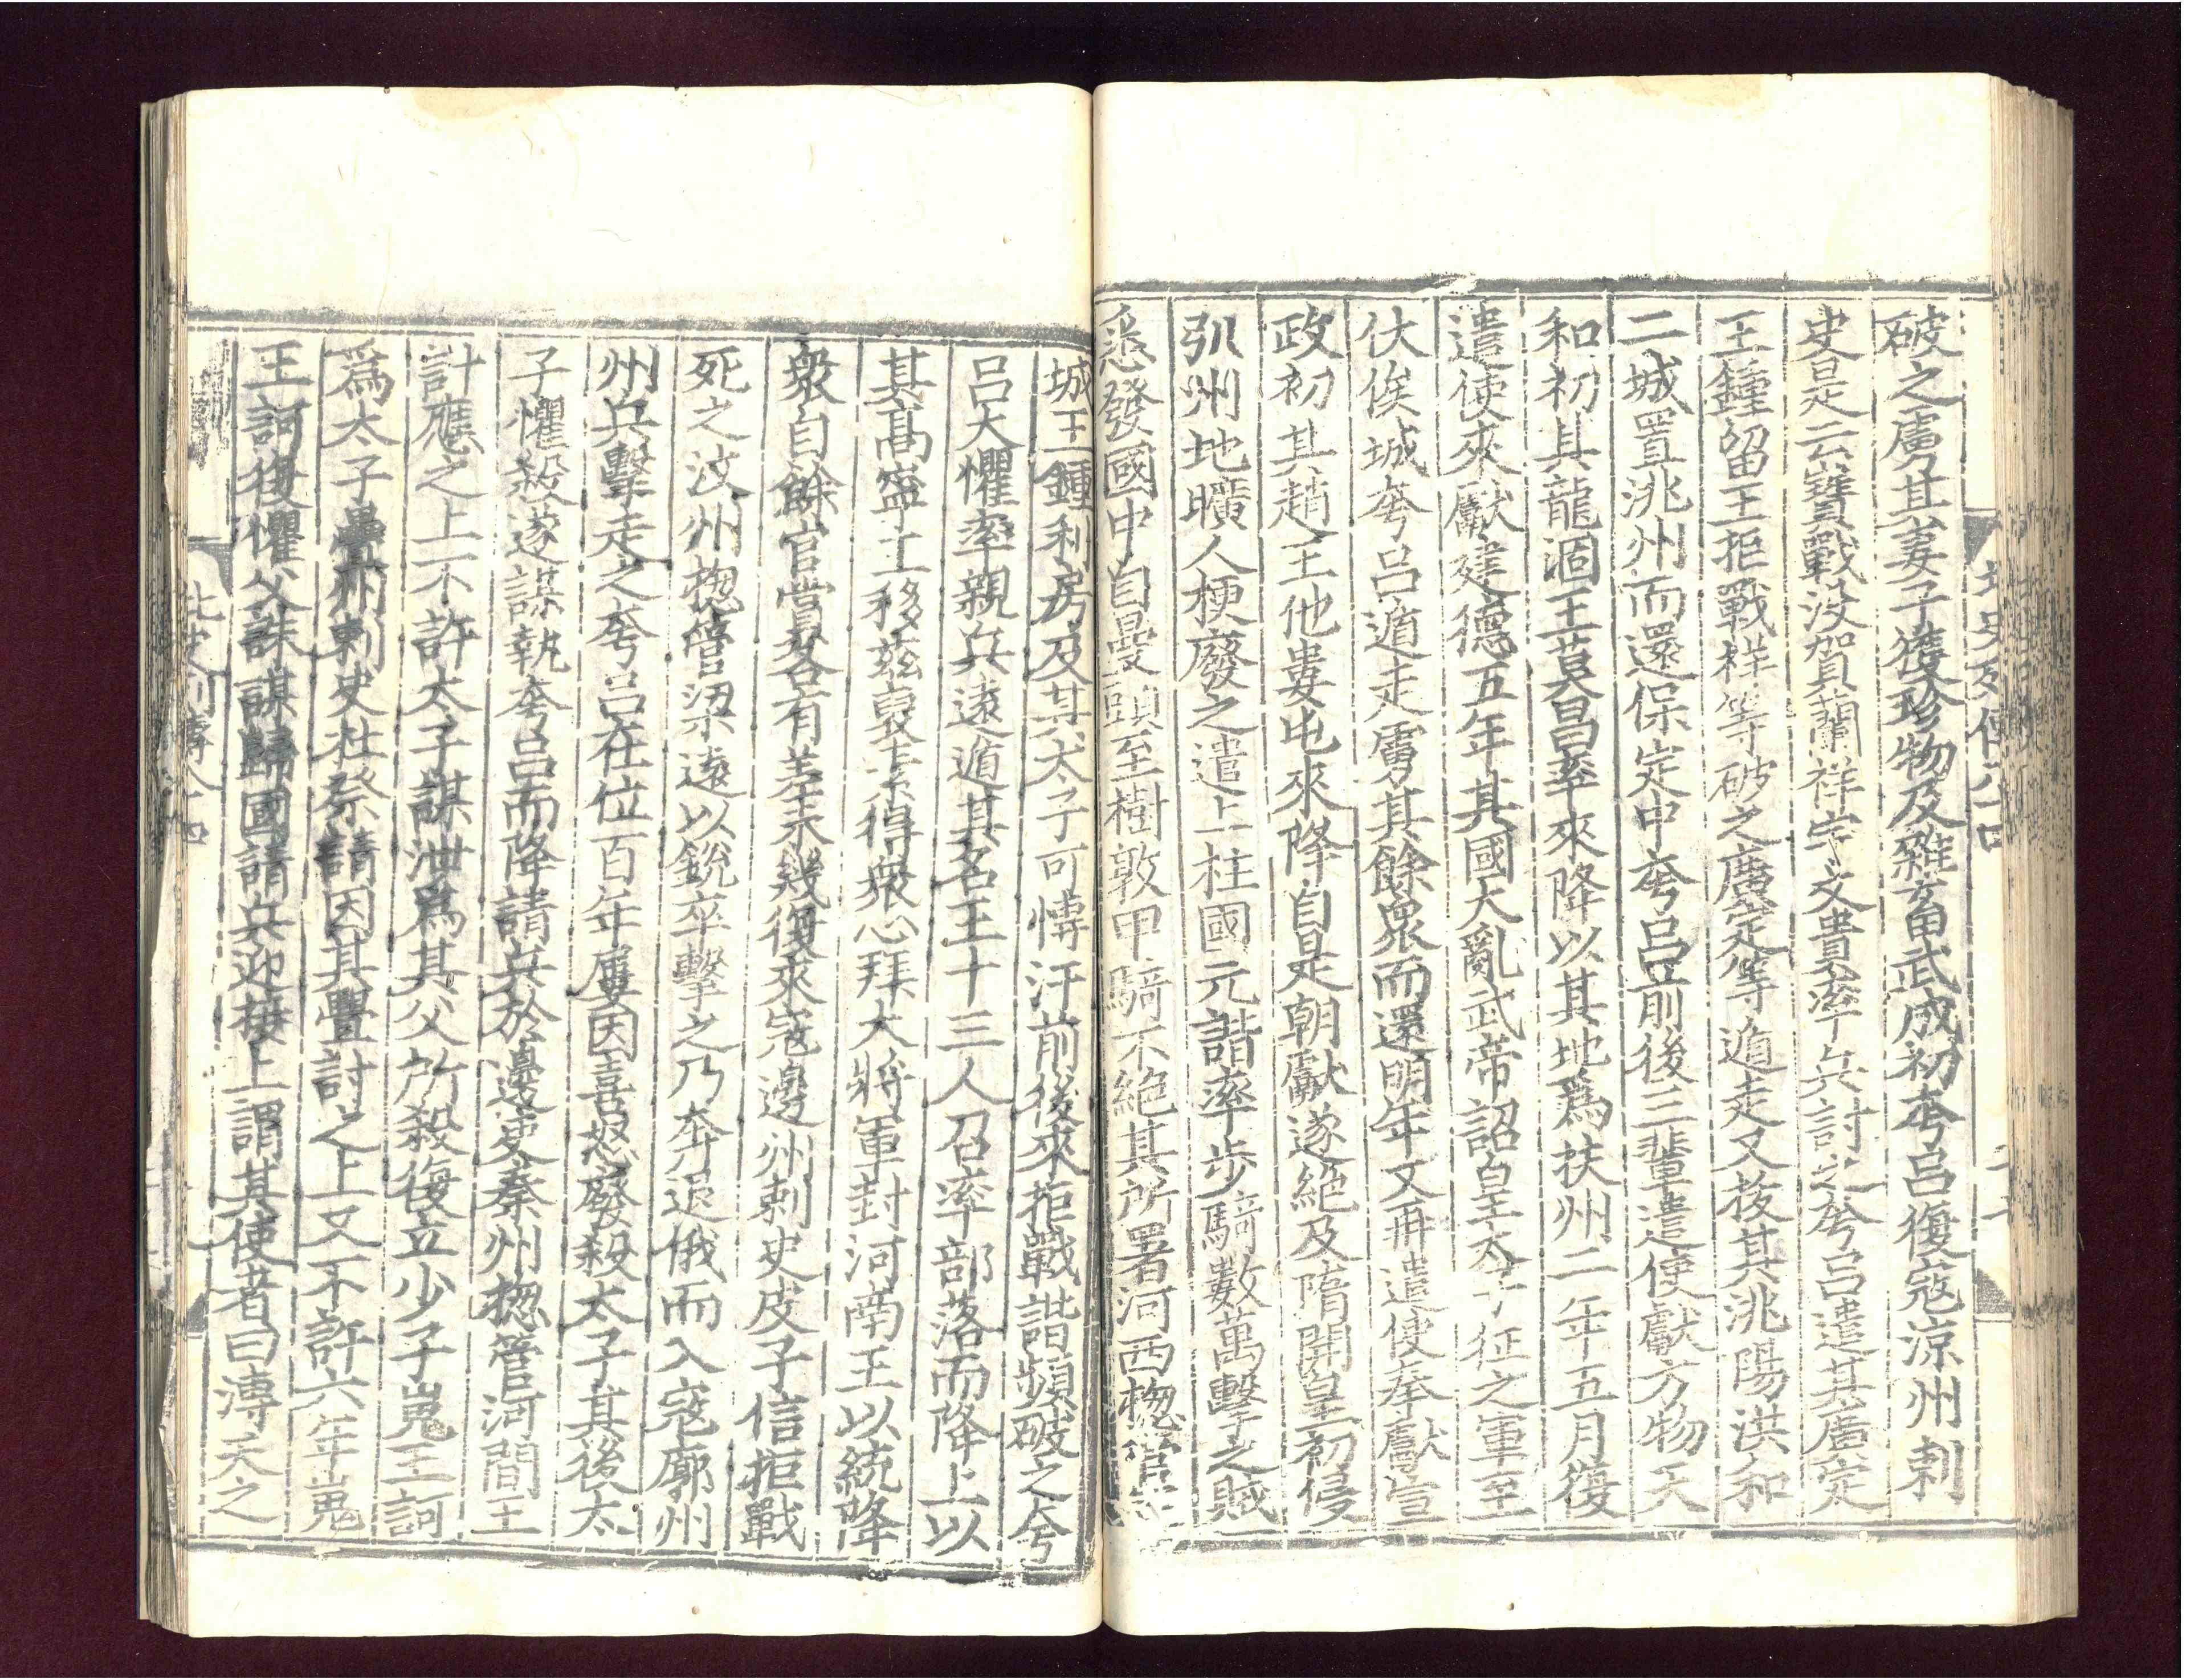 破之虜其妻子獲珍物及雜畜武成初夸呂復寇涼州刺
史是云寶戰沒賀蘭祥宇文貴率兵討之夸呂遣其廣定
王鍾留王拒戰祥等破之廣定等遁走又拔其洮陽洪和
二城置洮州而還保定中夸呂前後三輩遣使獻方物天
和初其龍涸王莫昌率來降以其地爲扶州二年五月復
遣使來獻建德五年其國大亂武帝詔皇太子征之軍至
伏俟城夸呂遁走虜其餘衆而還明年又再遣使奉獻宣
政初其趙王他婁屯來降自是朝獻遂絶及隋開皇初侵
弘州地曠人梗廢之遣上柱國元諧率步騎數萬擊之賊
悉發國中自曼頭至樹敦甲騎不絶其所署河西楤管定
城王鍾利房及其太子可博汗前後來拒戰諧頻破之夸
呂大懼率親兵遠遁其名王十三人召率部落而降上以
其高寧王移兹裒素得衆心拜大將軍封河南王以統降
衆自餘官賞各有差未幾復來寇邊州刺史皮子信拒戰
死之汶州楤管梁遠以銳卒擊之乃奔退俄而入寇廓州
州兵擊走之夸呂在位百年屢因喜怒廢殺太子其後太
子懼殺遂謀執夸呂而降請兵於邊吏秦州楤管河間王
計應之上不許太子謀泄爲其父所殺復立少子嵬王訶
爲太子疊州刺史杜粲請因其釁討之上又不許六年嵬
王訶復懼父誅謀歸國請兵迎接上謂其使者曰溥天之
北史列傳八十四